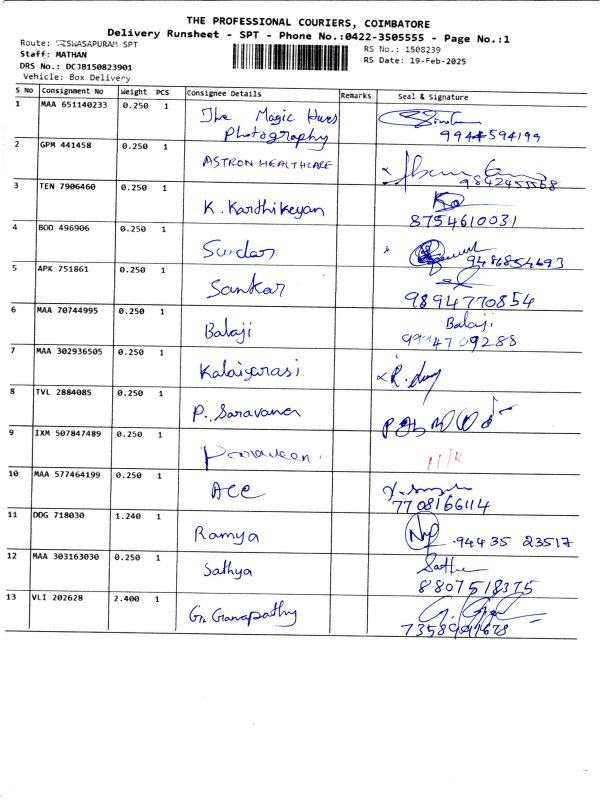 THE PROFESSIONAL COURIERS, COIMBATORE
Delivery Runsheet - SPT - Phone No.:0422-3505555 - Page No.:1
Route: VISWASAPURAM SPT
RS No.: 1508239
Staff: MATHAN
RS Date: 19-Feb-2025
DRS No.: DCJB150823901
Vehicle: Box Delivery
S No Consignment No Weight PCS Consignee Details Remarks Seal & Signature
1 MAA 651140233 0.250 1 The Magic Hues
Photography 9944594199
2 GPM 441458 0.250 1 ASTRON HEALTHCARE 9842455568
3 TEN 7906460 0.250 1 K. Karthikeyan
8754610031
4 BOD 496906 0.250 1 Sudar 9486854693
5 APK 751861 0.250 1 Sankar 9894770854
6 MAA 70744995 0.250 1 Balaji Balaji
9914709288
7 MAA 302936505 0.250 1 Kalaiyarasi
8 TVL 2884085 0.250 1 P. Saravanan
9 IXM 507847489 0.250 1
10 MAA 577464199 0.250 1 ACE
7708166114
11 DDG 718030 1.240 1 Ramya 94435 23517
12 MAA 303163030 0.250 1 Sathya
8807518375
13 VLI 202628 2.400 1 G. Ganapathy